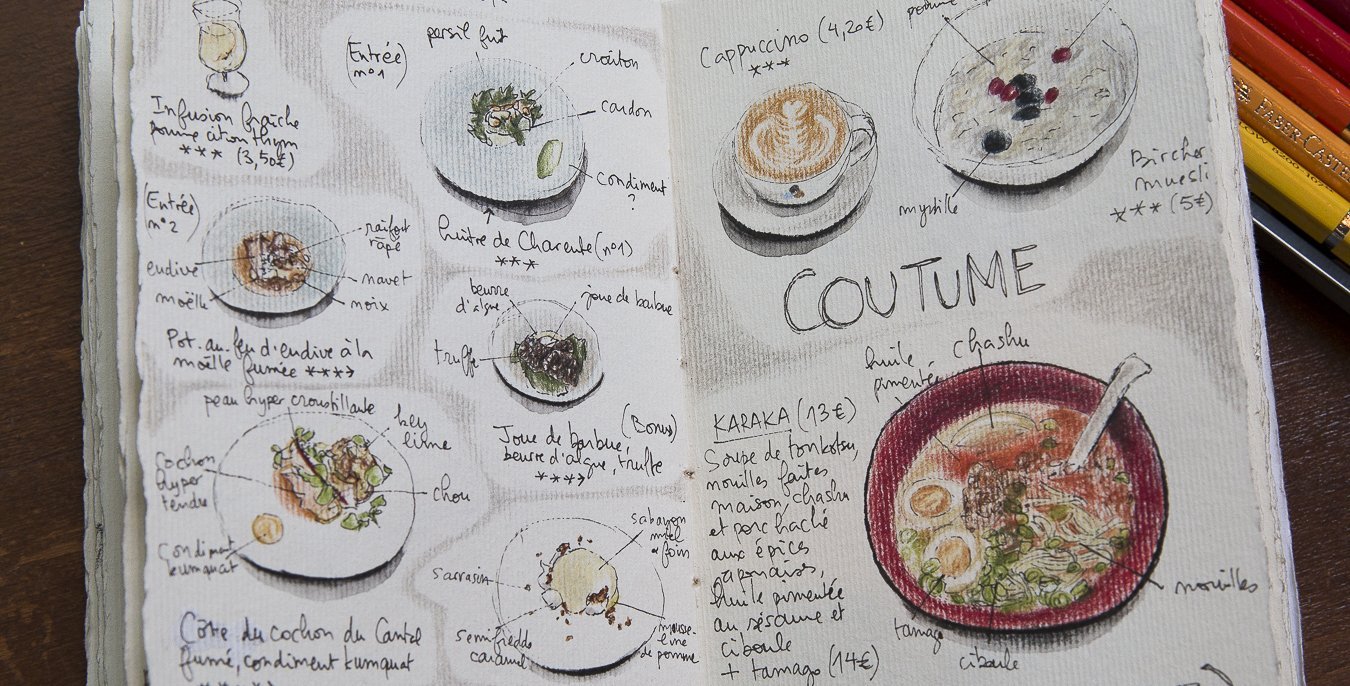 Infusion fraîche
pomme citron thym
*** (3,50€)
(Entrée
n°1)
persil frit
croûton
cardon
condiment
?
huître de Charente (n°1)
***
(Entrée
n°2)
raifort
râpé
endive
navet
moëlle
noix
Pot-au-feu d'endive à la
moëlle fumée ***→
beurre
d'algue
joue de barbue
truffe
(Bonus)
Joue de barbue,
beurre d'algue, truffe
***→
peau hyper croustillante
key
lime
cochon
hyper
tendre
chou
condiment
kumquat
Côte du cochon du Cantal
fumé, condiment kumquat
sabayon
miel
foin
sarrasin
semifreddo
caramel
mousse-
line
de pomme
Cappuccino (4,20€)
***
myrtille
Bircher
muesli
*** (5€)
COUTUME
huile
pimentée
chashu
KARAKA (13€)
Soupe de tonkotsu,
nouilles faites
maison, chashu
et porc haché
aux épices
japonaises,
huile pimentée
au sésame et
ciboule
+ tamago (14€)
nouilles
tamago
ciboule
FABER-CASTE